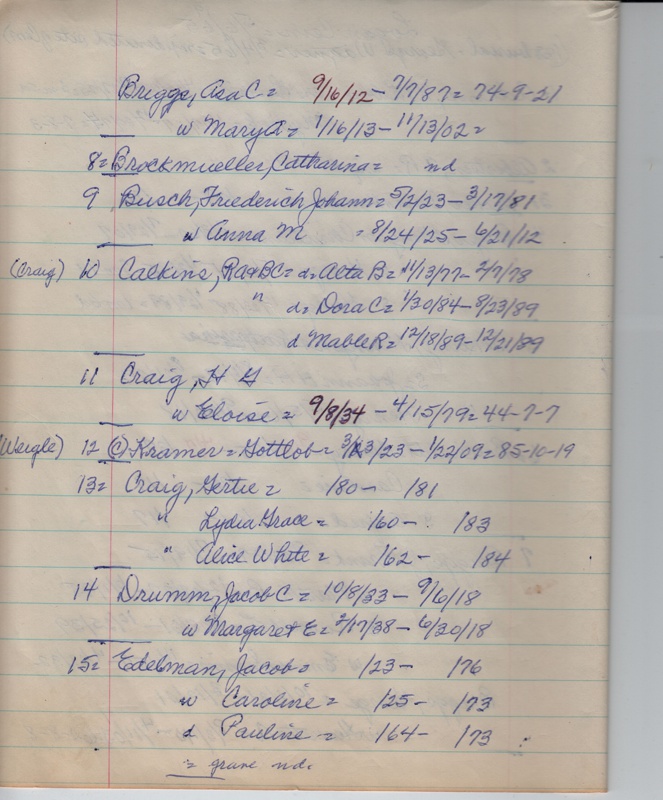 Briggs, Asa C = 9/16/12 - 7/7/87 = 74-9-21
w Mary A = 1/16/13 - 11/13/02 =
8 = Brockmueller, Catharina = nd
9 Busch, Friederich Johann = 5/2/23 - 3/17/81
w Anna M = 8/24/25 - 6/21/12
(Craig) 10 Calkins, RA & BC = d. Alta B = 11/13/77 - 2/7/78
" d = Dora C = 1/30/84 - 8/23/89
d Mable R = 12/18/89 - 12/21/89
11 Craig, H G
w Eloise = 9/8/34 - 4/15/79 = 44-7-7
(Weigle) 12 (C) Kramer = Gottlob = 3/3/23 - 1/22/09 = 85-10-19
13 = Craig, Gertie = 180 - 181
" Lydia Grace = 160 - 183
" Alice White = 162 - 184
14 Drumm, Jacob C = 10/8/33 - 9/6/18
w Margaret E = 2/17/38 - 6/30/18
15 = Edelman, Jacob = 123 - 176
w Caroline = 125 - 173
d Pauline = 164 - 173
= grave nd.